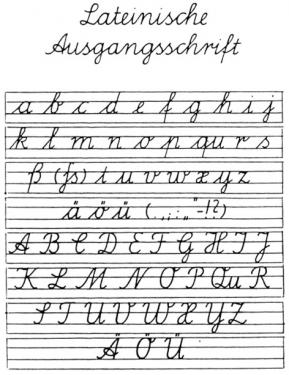 Lateinische
Ausgangsschrift
a b c d e f g h i j
k l m n o p qu r s
ß (ſs) t u v w x y z
ä ö ü ( . , ; : „ " - ! ? )
A B C D E F G H I J
K L M N O P Qu R
S T U V W X Y Z
Ä Ö Ü